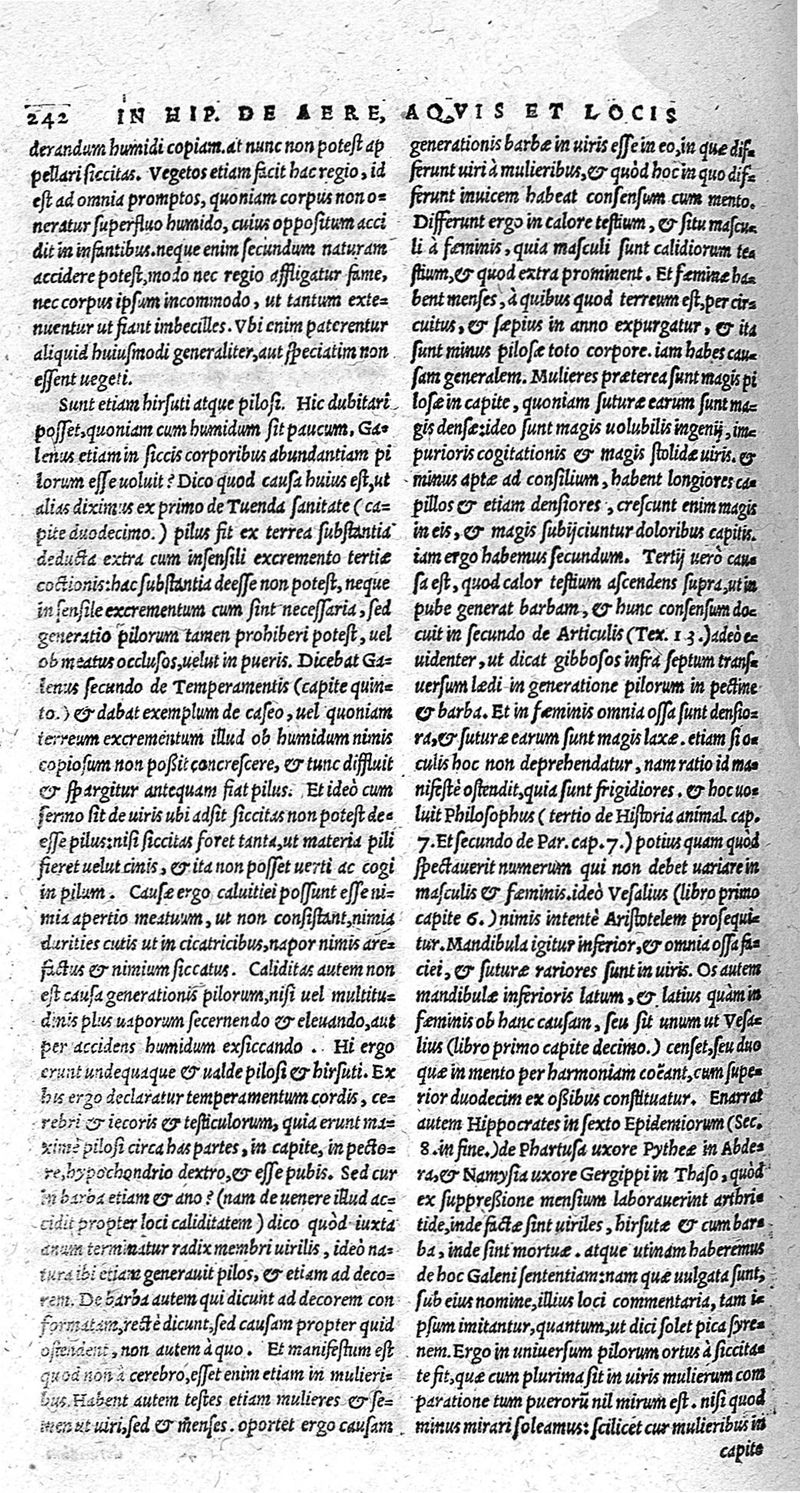 242 IN HIP. DE AERE, AQVIS ET LOCIS
derandum humidi copiam. at nunc non potest ap
pellari siccitas. Vegetos etiam facit hac regio, id
est ad omnia promptos, quoniam corpus non o=
neratur superfluo humido, cuius oppositum acci
dit in infantibus. neque enim secundum naturam
accidere potest, modo nec regio affligatur fame,
nec corpus ipsum incommodo, ut tantum exte=
nuentur ut fiant imbecilles. Vbi enim paterentur
aliquid huiusmodi generaliter, aut speciatim non
essent uegeti.
Sunt etiam hirsuti atque pilosi. Hic dubitari
posset, quoniam cum humidum sit paucum. Ga=
lenus etiam in siccis corporibus abundantiam pi
lorum esse uoluit? Dico quod causa huius est, ut
alias diximus ex primo de Tuenda sanitate (ca=
pite duodecimo.) pilus fit ex terrea substantia
deducta extra cum insensili excremento tertiæ
coctionis: hac substantia deesse non potest, neque
insensile excrementum cum sint necessaria, sed
generatio pilorum tamen prohiberi potest, uel
ob meatus occlusos, uelut in pueris. Dicebat Ga=
lenus secundo de Temperamentis (capite quin=
to.) & dabat exemplum de caseo, uel quoniam
terreum excrementum illud ob humidum nimis
copiosum non poßit concrescere, & tunc diffluit
& spargitur antequam fiat pilus. Et ideò cum
sermo sit de uiris ubi adsit siccitas non potest de=
esse pilus: nisi siccitas foret tanta, ut materia pili
fieret uelut cinis, & ita non posset uerti ac cogi
in pilum. Causæ ergo caluitiei possunt esse ni=
mia apertio meatuum, ut non consistant, nimia
durities cutis ut in cicatricibus, uapor nimis are=
factus & nimium siccatus. Caliditas autem non
est causa generationis pilorum, nisi uel multitu=
dinis plus uaporum secernendo & eleuando, aut
per accidens humidum exsiccando. Hi ergo
erunt undequaque & ualde pilosi & hirsuti. Ex
his ergo declaratur temperamentum cordis, ce=
rebri & iecoris & testiculorum, quia erunt ma=
ximè pilosi circa has partes, in capite, in pecto=
re, hypochondrio dextro, & esse pubis. Sed cur
in barba etiam & ano? (nam de uenere illud ac=
cidit propter loci caliditatem) dico quòd iuxta
anum terminatur radix membri uirilis, ideò na=
tura ibi etiam generauit pilos, & etiam ad deco=
rem. De barba autem qui dicunt ad decorem con
formatam, rectè dicunt, sed causam propter quid
ostendent, non autem à quo. Et manifestum est
quod non à cerebro, esset enim etiam in mulieri=
bus. Habent autem testes etiam mulieres & se=
men ut uiri, sed & menses. oportet ergo causam
generationis barbæ in uiris esse in eo, in quæ dif=
ferunt uiri à mulieribus, & quòd hoc in quo dif=
ferunt inuicem habeat consensum cum mento.
Differunt ergo in calore testium, & situ mascu=
li à fæminis, quia masculi sunt calidiorum te=
stium, & quod extra prominent. Et fæminæ ha=
bent menses, à quibus quod terreum est, per cir=
cuitus, & sæpius in anno expurgatur, & ita
sunt minus pilosæ toto corpore. iam habes cau=
sam generalem. Mulieres præterea sunt magis pi
losæ in capite, quoniam suturæ earum sunt ma=
gis densæ: ideo sunt magis uolubilis ingenij, im=
purioris cogitationis & magis stolidæ uiris. &
minus aptæ ad consilium, habent longiores ca=
pillos & etiam densiores, crescunt enim magis
in eis, & magis subijciuntur doloribus capitis.
iam ergo habemus secundum. Tertij uerò cau=
sa est, quod calor testium ascendens supra, ut in
pube generat barbam, & hunc consensum do=
cuit in secundo de Articulis (Tex. 13.) adeò e=
uidenter, ut dicat gibbosos infra septum trans=
uersum lædi in generatione pilorum in pectine
& barba. Et in fæminis omnia ossa sunt densio=
ra, & suturæ earum sunt magis laxæ. etiam si o=
culis hoc non deprehendatur, nam ratio id ma=
nifestè ostendit, quia sunt frigidiores. & hoc uo=
luit Philosophus (tertio de Historia animal. cap.
7. Et secundo de Par. cap. 7.) potius quam quòd
spectauerit numerum qui non debet uariare in
masculis & fæminis. ideò Vesalius (libro primo
capite 6.) nimis intentè Aristotelem prosequi=
tur. Mandibula igitur inferior, & omnia ossa fa=
ciei, & suturæ rariores sunt in uiris. Os autem
mandibulæ inferioris latum, & latius quàm in
fæminis ob hanc causam, seu sit unum ut Vesa=
lius (libro primo capite decimo.) censet, seu duo
quæ in mento per harmoniam coëant, cum supe=
rior duodecim ex oßibus constituatur. Enarrat
autem Hippocrates in sexto Epidemiorum (Sec.
8. in fine.) de Phartusa uxore Pytheæ in Abde=
ra, & Namysia uxore Gergippi in Thaso, quòd
ex suppreßione mensium laborauerint arthri=
tide, inde factæ sint uiriles, hirsutæ & cum bar=
ba, inde sint mortuæ. atque utinam haberemus
de hoc Galeni sententiam: nam quæ uulgata sunt,
sub eius nomine, illius loci commentaria, tam i=
psum imitantur, quantum, ut dici solet pica syre=
nem. Ergo in uniuersum pilorum ortus à siccita=
te fit, quæ cum plurima sit in uiris mulierum com
paratione tum puerorũ nil mirum est. nisi quod
minus mirari soleamus: scilicet cur mulieribus in
capite